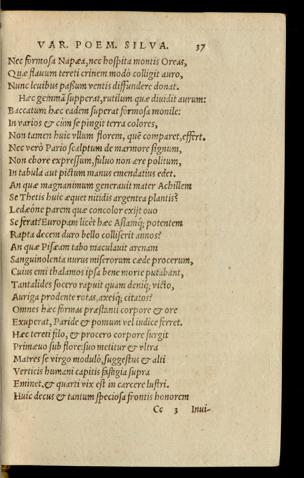 VAR. POEM. SILVA. 37
Nec formosa Napæa, nec hospita montis Oreas,
Quæ flauum tereti crinem modò colligit auro,
Nunc leuibus passum ventis diffundere donat.
Hæc gemmâ supperat, rutilum quæ diuidit aurum:
Baccatum hæc eadem superat formosa monile:
In varios & cùm se pingit terra colores,
Non tamen huic vllum florem, quē comparet, effert.
Nec verò Pario scalptum de marmore signum,
Non ebore expressum, fuluo non ære politum,
In tabula aut pictum manus emendatius edet.
An quæ magnanimum generauit mater Achillem
Se Thetis huic æquet nitidis argentea plantis?
Ledæóne parem quæ concolor exijt ouo
Se ferat? Europam licèt hæc Asiamq; potentem
Rapta decem duro bello colliserit annos?
An quæ Pisæam tabo maculauit arenam
Sanguinolenta nurus miserorum cæde procerum,
Cuius emi thalamos ipsa bene morte putabant,
Tantalides socero rapuit quam deniq; victo,
Auriga prodente rotas, axesq; citatos?
Omnes hæc formas præstanti corpore & ore
Exuperat, Paride & pomum vel iudice ferret.
Hæc tereti filo, & procero corpore surgit
Primæuo sub flore: suo metitur & vltra
Matres se virgo modulò, suggestus & alti
Verticis humani capitis fastigia supra
Eminet, & quarti vix est in carcere lustri.
Huic decus & tantum speciosa frontis honorem
Cc 3 Inui-